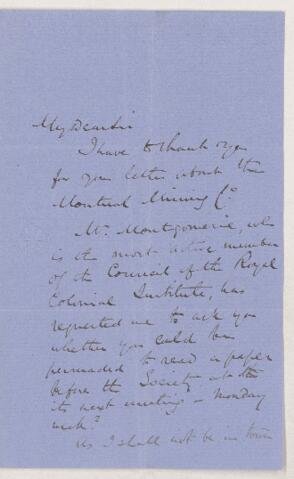 My dear Sir
I have to thank you
for your letter about the
Montreal Mining Co.
Mr. Montgomerie, who
is the most active member
of the Council of the Royal
Colonial Institute, has
requested me to ask you
whether you could be
persuaded to read a paper
before the Society at
its next meeting - Monday
week?
As I shall not be in town